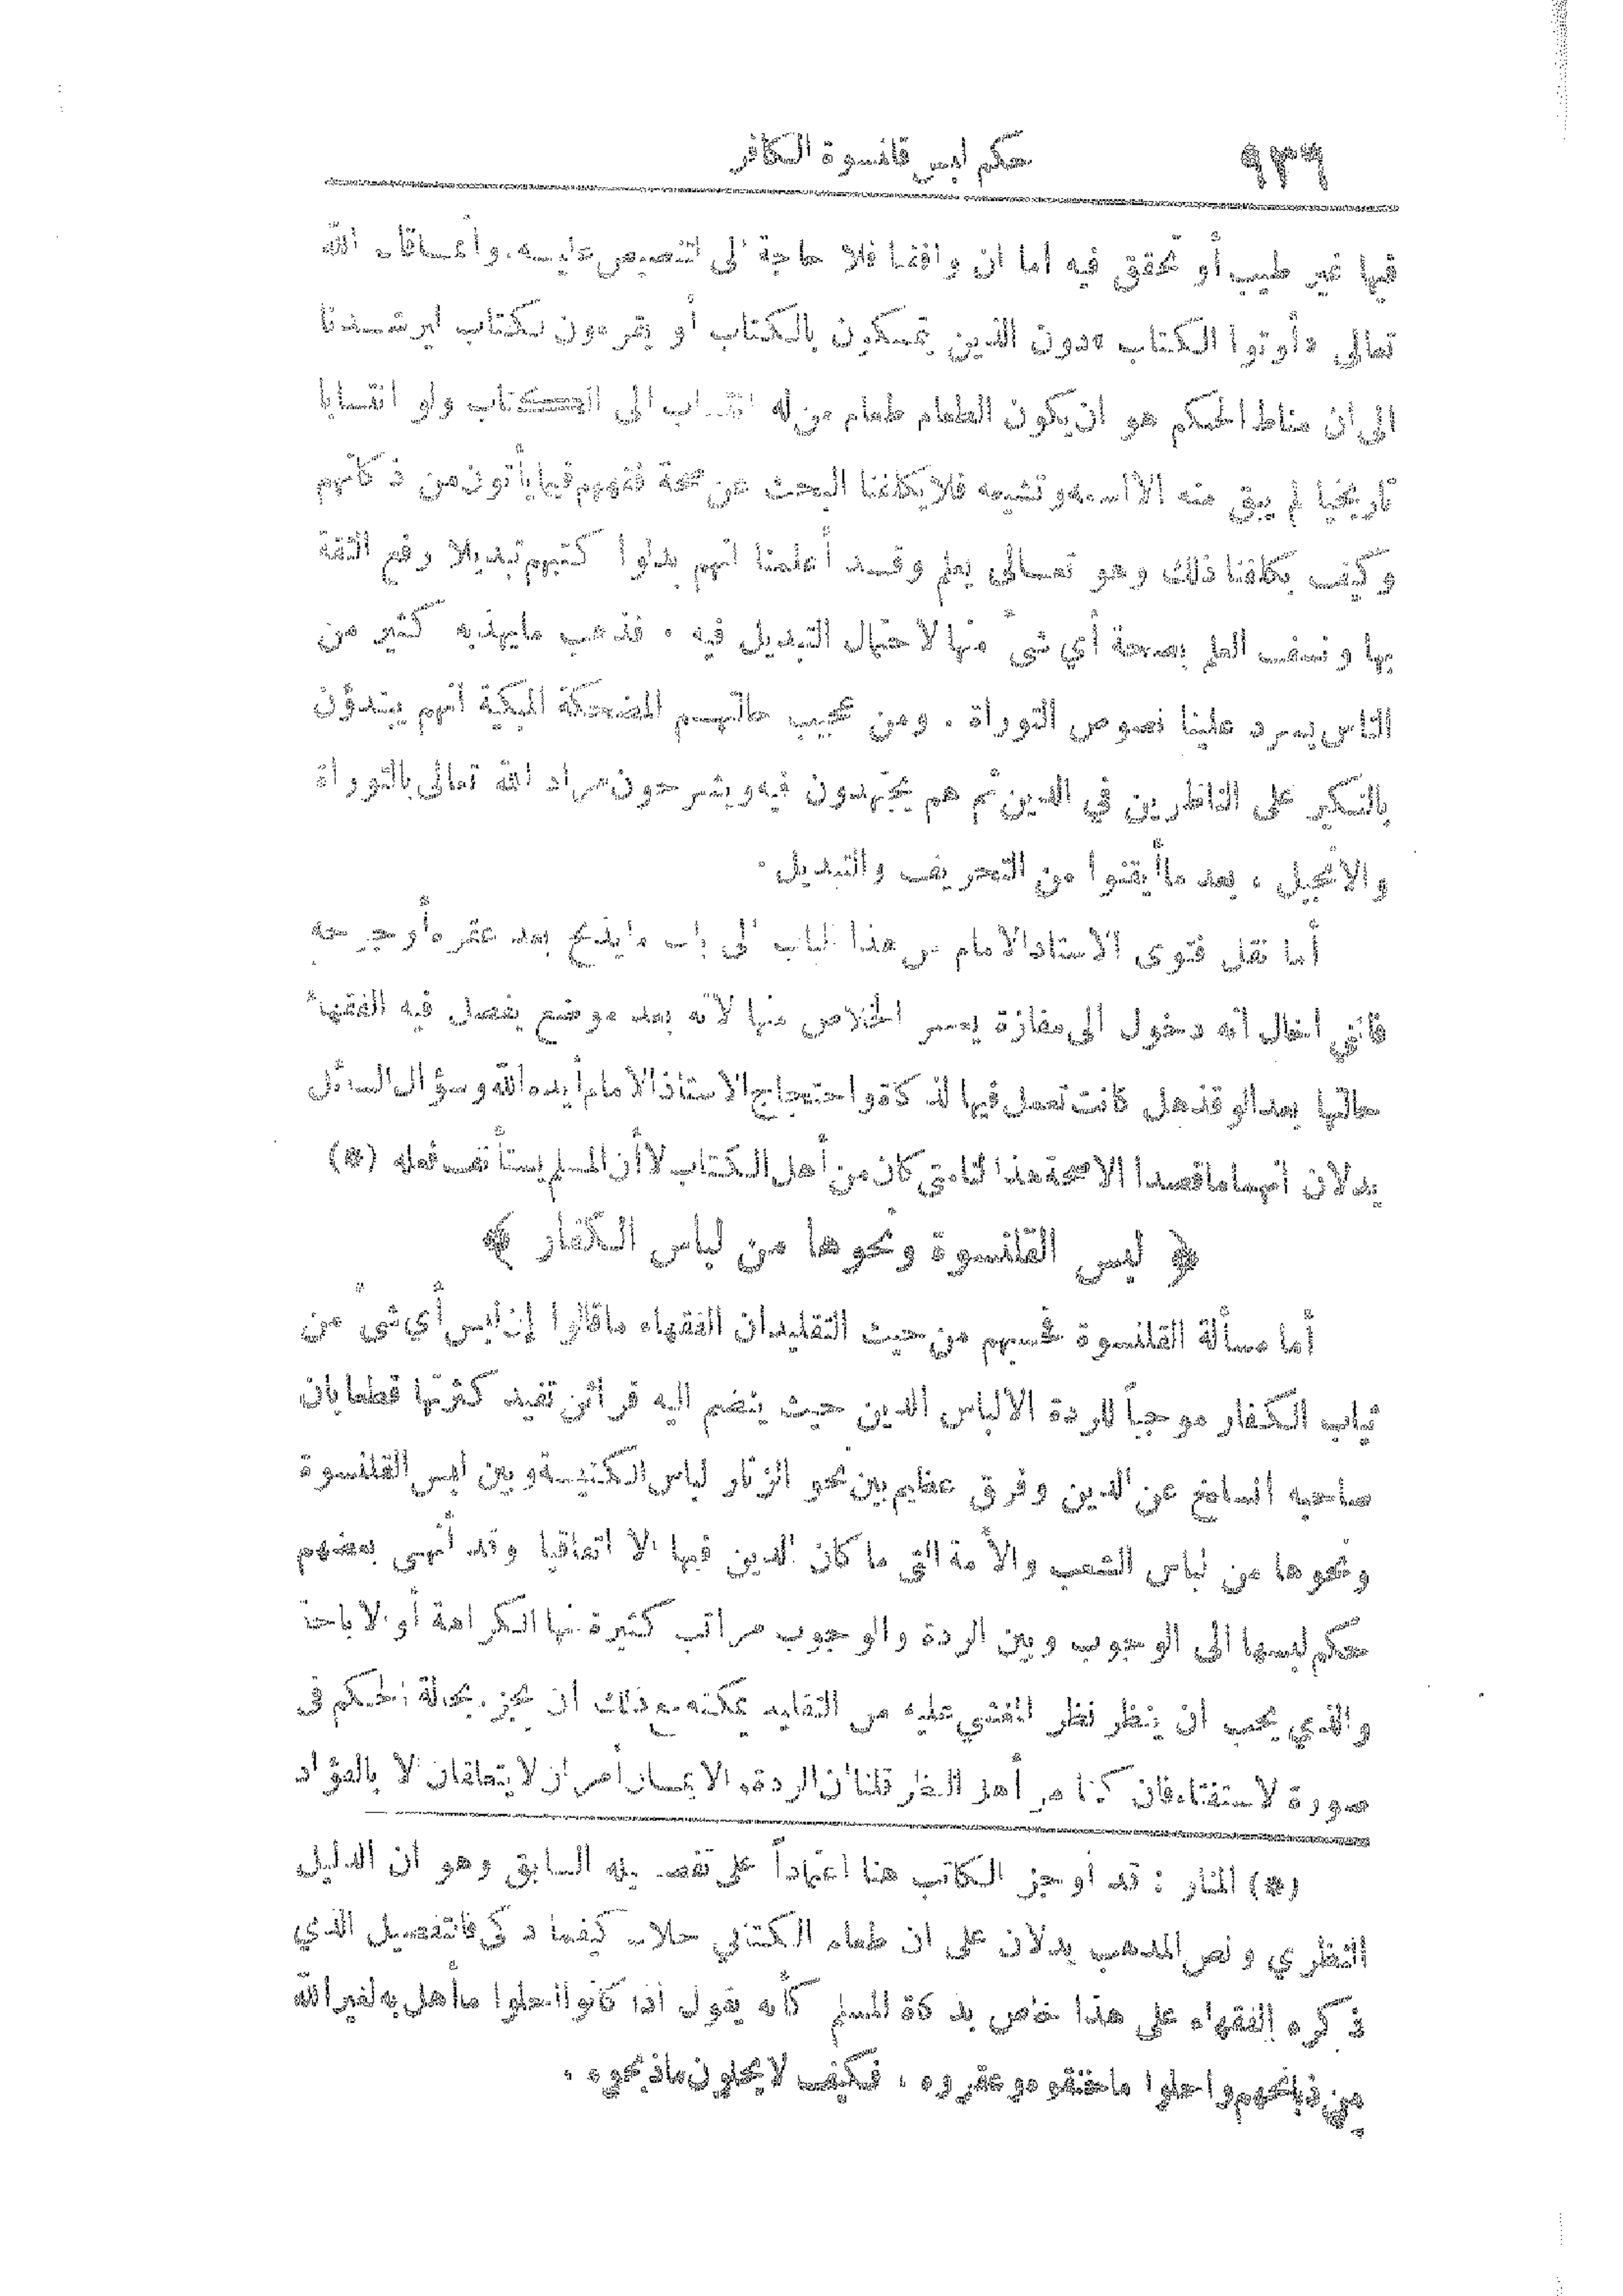 ٩٣٦ حكم لبس قلنسوة الكافر
فيها غير طيب أو تحقق فيه اما ان وافقنا فلا حاجة الى التنصيص عليه. وانما قال الله
تعالى «أوتوا الكتاب» دون الذين يتمسكون بالكتاب أو يقرءون الكتاب ليرشدنا
الى ان مناط الحكم هو ان يكون الطعام طعام من له انتساب الى الكتاب ولو انتسابا
تاريخيا لم يبق منه الا اسمه وتشيعه فلا يكلفنا البحث عن صحة فقههم فيما يأتون من ذكاتهم
وكيف يكلفنا ذلك وهو تعالى يعلم وقد أعلمنا انهم بدلوا كتبهم تبديلا رفع الثقة
بها ونسف العلم بصحة أي شئ منها لاحتمال التبديل فيه . فذهب ما يهذبه كثير من
الناس يسرد علينا نصوص التوراة . ومن عجيب حالتهم المضحكة المبكية أنهم يبتدؤن
بالنكير على الناظرين في الدين ثم هم يجتهدون فيه ويشرحون مراد الله تعالى بالتوراة
والانجيل ، بعد ما أيقنوا من التحريف والتبديل .
أما نقل فتوى الاستاذ الامام من هذا الباب الى باب ما يذبح بعد عقره أو جرحه
فانني اخال انه دخول الى مفازة يعسر الخلاص منها لانه بعد موضع يفصل فيه الفقهاء
حالتها بعد الوقذ هل كانت تعمل فيها الذكاة واحتجاج الاستاذ الامام أيده الله وسؤال السائل
يدلان انهما ما قصدا الا صحة هذا كلامتى كان من أهل الكتاب لا أن المسلم يستأنف فعله (*)
﴿ لبس القلنسوة ونحوها من لباس الكفار ﴾
أما مسألة القلنسوة فحسبهم من حيث التقليد ان الفقهاء ما قالوا إن لبس أي شئ من
ثياب الكفار موجباً للردة الا لباس الدين حيث ينضم اليه قرائن تفيد كثرتها قطعا بان
صاحبه انسلخ عن الدين وفرق عظيم بين نحو الزنار لباس الكنيسة وبين لبس القلنسوة
ونحوها من لباس الشعب والأمة التي ما كان الدين فيها الا اتفاقيا وقد أنهى بعضهم
حكم لبسها الى الوجوب وبين الردة والوجوب مراتب كثيرة منها الكراهة أو الاباحة
والذي يجب ان ينظر نظر المفتي عليه من التقليد يمكنه مع ذلك ان يجزم بحالة الحكم فى
صورة الاستفتاء فان كنا من أهل النظر قلنا ان الردة والايمان أمران لا يتعلقان الا بالفؤاد
(*) المنار : قد أوجز الكاتب هنا اعتماداً على تفصيله السابق وهو ان الدليل
النظري ونص المذهب يدلان على ان طعام الكتابي حلال كيفما ذكى فالتفصيل الذي
ذكره الفقهاء على هذا خاص بذكاة المسلم كأنه يقول اذا كانوا احلوا ما أهل به لغير الله
من ذبائحهم واحلوا ما خنقوه وعقروه ، فكيف لا يحلون ما ذبحوه .